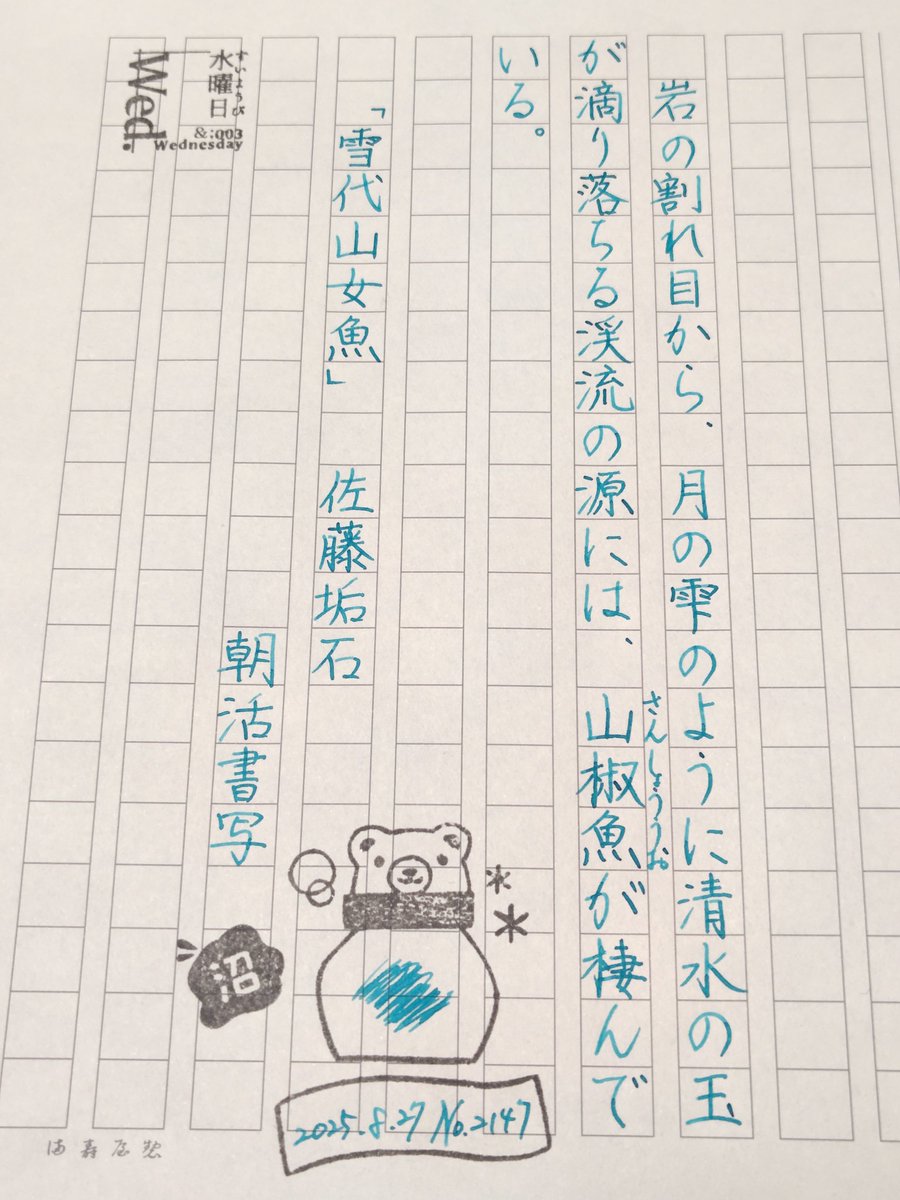 岩の割れ目から、月の雫のように清水の玉
が滴り落ちる渓流の源には、山椒魚が棲んで
さんしょううお
いる。
「雪代山女魚」　佐藤垢石
朝活書写
水曜日
すいようび
&:003
Wednesday
Wed.
沼
2025.8.27 No.2147
満寿屋製